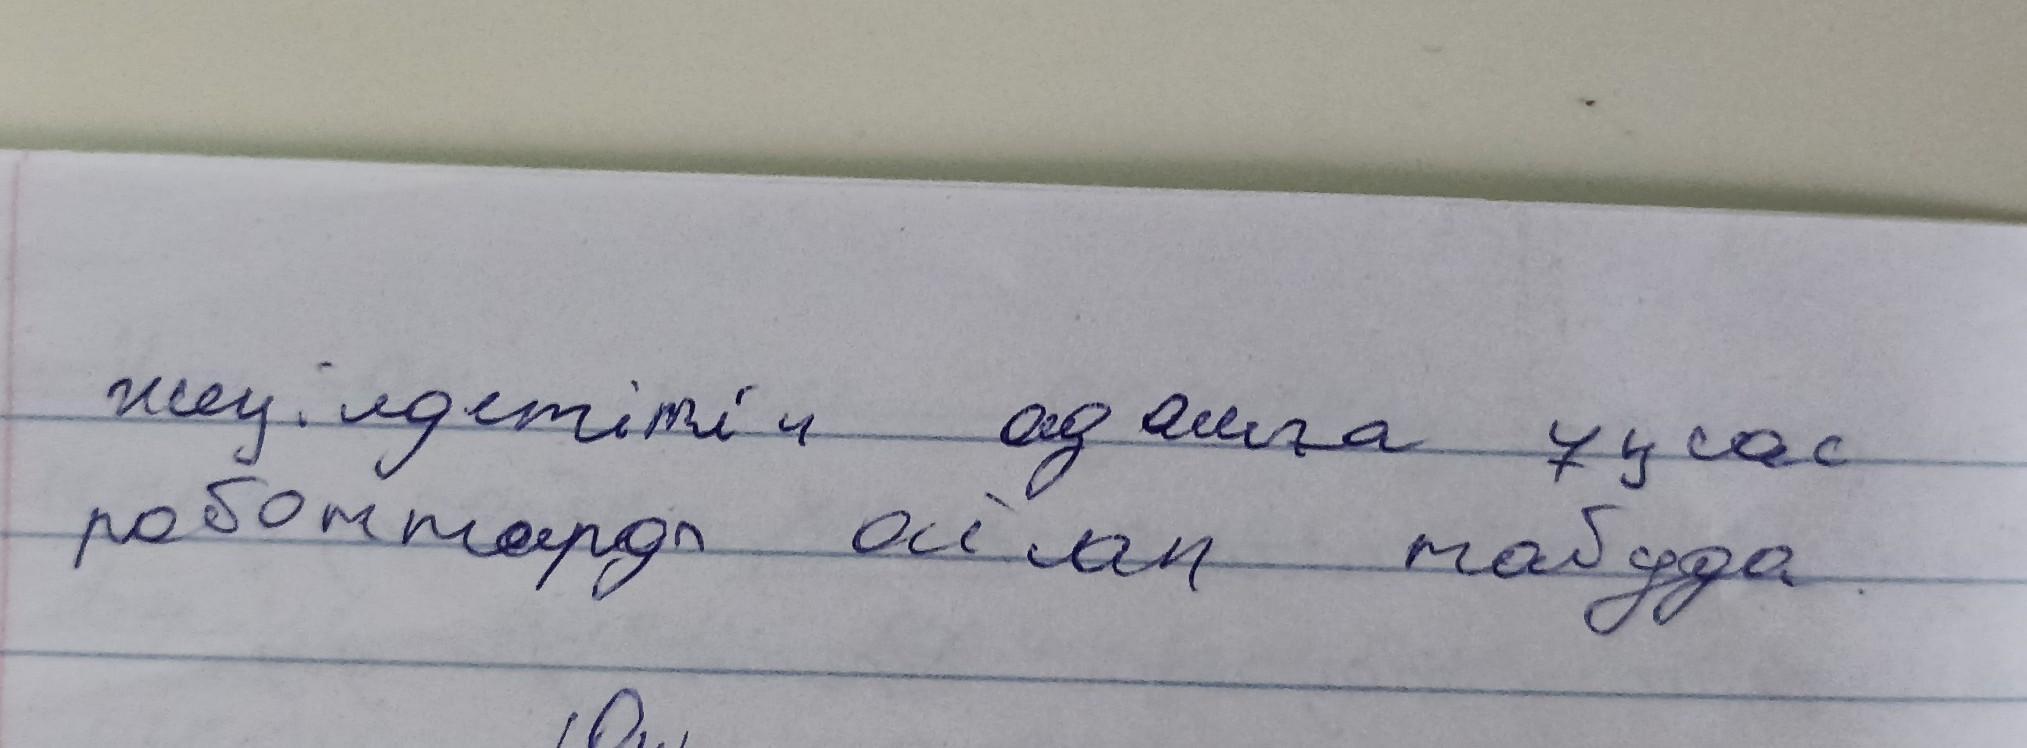 жеңілдетітін адамға ұқсас
роботтарды ойлап табуда.